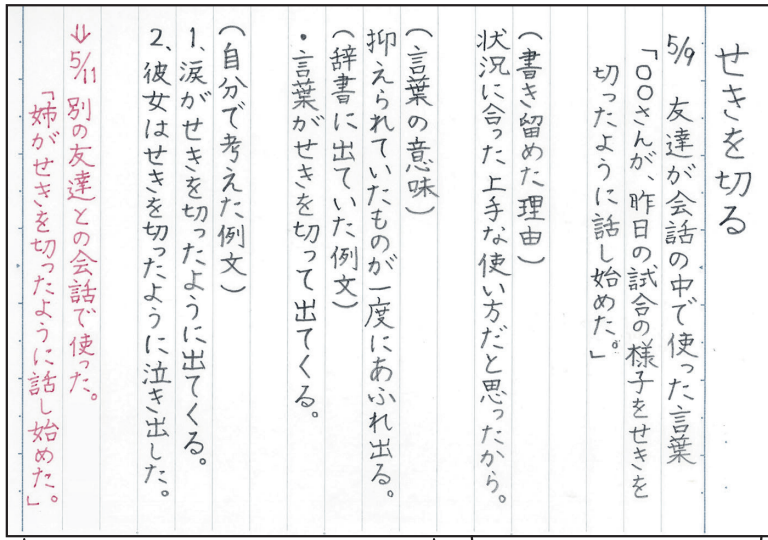 せきを切る
5/9 友達が会話の中で使った言葉
「○○さんが、昨日の試合の様子をせきを
切ったように話し始めた。」
(書き留めた理由)
状況に合った上手な使い方だと思ったから。
(言葉の意味)
抑えられていたものが一度にあふれ出る。
(辞書に出ていた例文)
・言葉がせきを切って出てくる。
(自分で考えた例文)
1、涙がせきを切ったように出てくる。
2、彼女はせきを切ったように泣き出した。
⇒5/11 別の友達との会話で使った。
「姉がせきを切ったように話し始めた。」